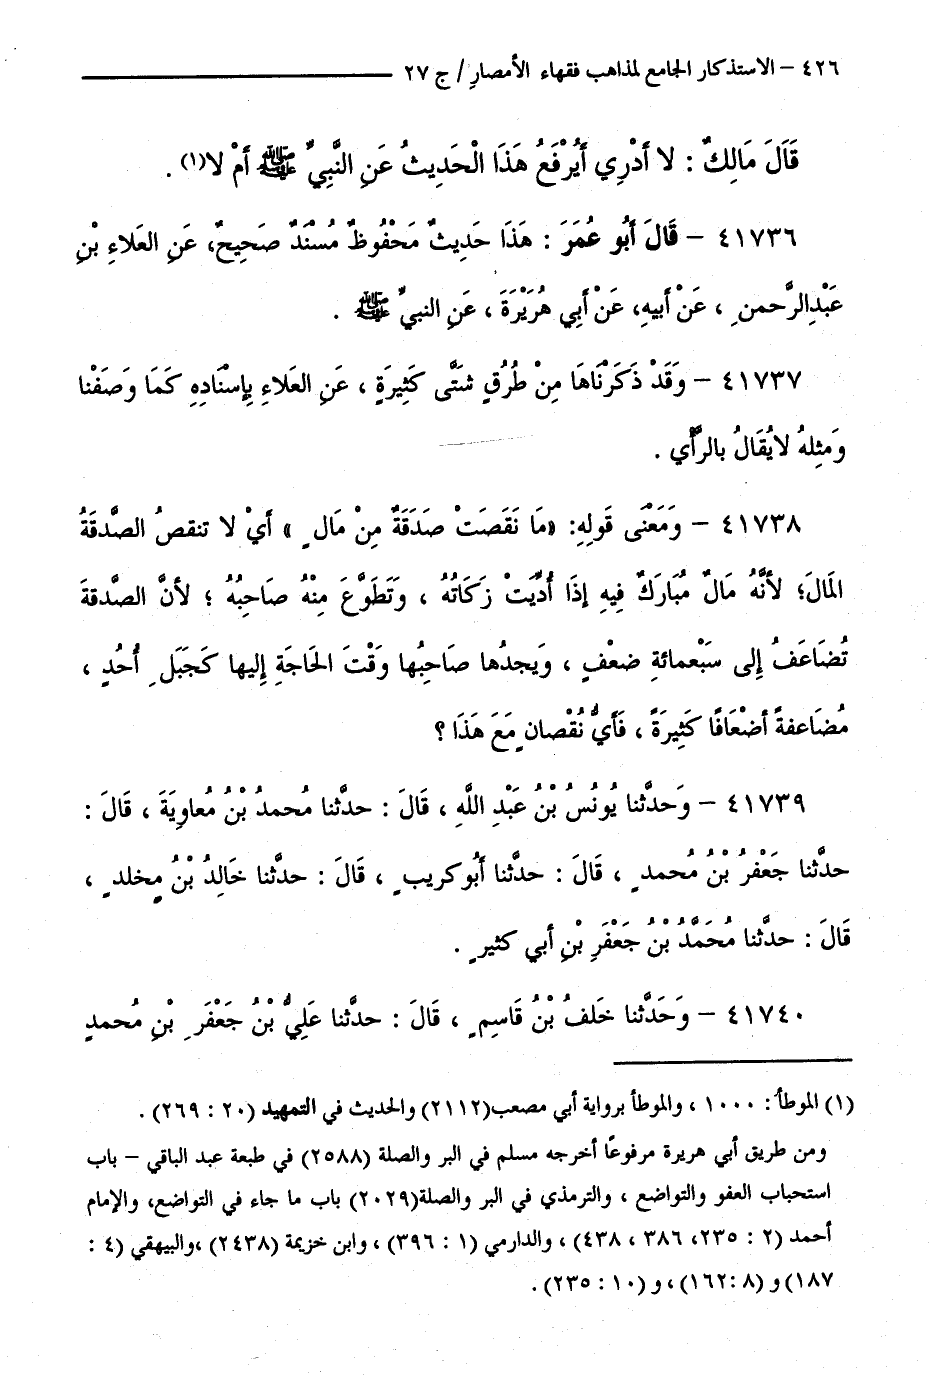 ٤٢٦ – الاستذكار الجامع لمذاهب فقهاء الأمصار / ج ٢٧
قَالَ مَالِكٌ : لا أدْرِي أيُرْفَعُ هَذَا الْحَدِيثُ عَنِ النَّبِيِّ ﷺ أمْ لا(١) .
٤١٧٣٦ – قَالَ أبُو عُمَرَ : هَذَا حَدِيثٌ مَحْفُوظٌ مُسْنَدٌ صَحِيحٌ، عَنِ العَلاءِ بْنِ
عَبْدِالرَّحمنِ ، عَنْ أبيهِ، عَنْ أبِي هُرَيْرَةَ ، عَنِ النبيِّ ﷺ .
٤١٧٣٧ – وَقَدْ ذَكَرْنَاهَا مِنْ طُرُقٍ شَتَّى كَثِيرَةٍ ، عَنِ العَلاءِ بِإِسْنَادِهِ كَمَا وَصَفْنا
وَمثِلهُ لايُقَالُ بالرَّأْيِ .
٤١٧٣٨ – وَمَعْنَى قَولِهِ: «مَا نَقَصَتْ صَدَقَةٌ مِنْ مَالٍ » أيْ لا تنقصُ الصَّدقَةُ
المَالَ؛ لأنَّهُ مَالٌ مُبَارَكٌ فِيهِ إذَا أُدِّيَتْ زَكَاتُهُ ، وَتَطَوَّعَ مِنْهُ صَاحِبُهُ ؛ لأنَّ الصَّدقةَ
تُضَاعَفُ إِلى سَبْعمائةِ ضعْفٍ ، وَيَجدُها صَاحِبُها وَقْتَ الحَاجَةِ إِليها كَجَبَلِ أُحُدٍ ،
مُضَاعفةً أضْعَافًا كَثِيرَةً ، فَأَيُّ نُقْصانٍ مَعَ هَذَا ؟
٤١٧٣٩ – وَحدَّثنا يُونُسُ بْنُ عَبْدِ اللَّهِ ، قَالَ : حدَّثنا مُحمدُ بْنُ مُعاوِيَةَ ، قَالَ :
حدَّثنا جَعْفرُ بْنُ مُحمدٍ ، قَالَ : حدَّثنا أبُوكريبٍ ، قَالَ : حدَّثنا خَالِدُ بْنُ مخلدٍ ،
قَالَ : حدَّثنا مُحَمَّدُ بْنُ جَعْفَرِ بْنِ أبي كثيرٍ .
٤١٧٤٠ – وَحَدَّثنا خَلفُ بْنُ قَاسِمٍ ، قَالَ : حدَّثنا عَلِيُّ بْنُ جَعْفَرِ بْنِ مُحمدٍ
(١) الموطأ : ١٠٠٠ ، والموطأ برواية أبي مصعب(٢١١٢) والحديث في التمهيد (٢٠ : ٢٦٩) .
ومن طريق أبي هريرة مرفوعًا أخرجه مسلم في البر والصلة (٢٥٨٨) في طبعة عبد الباقي – باب
استحباب العفو والتواضع ، والترمذي في البر والصلة(٢٠٢٩) باب ما جاء في التواضع، والإمام
أحمد (٢ : ٢٣٥، ٣٨٦ ، ٤٣٨) ، والدارمي (١ : ٣٩٦) ، وابن خزيمة (٢٤٣٨) ،والبيهقي (٤ :
١٨٧) و (٨ :١٦٢) ، و (١٠ : ٢٣٥) .